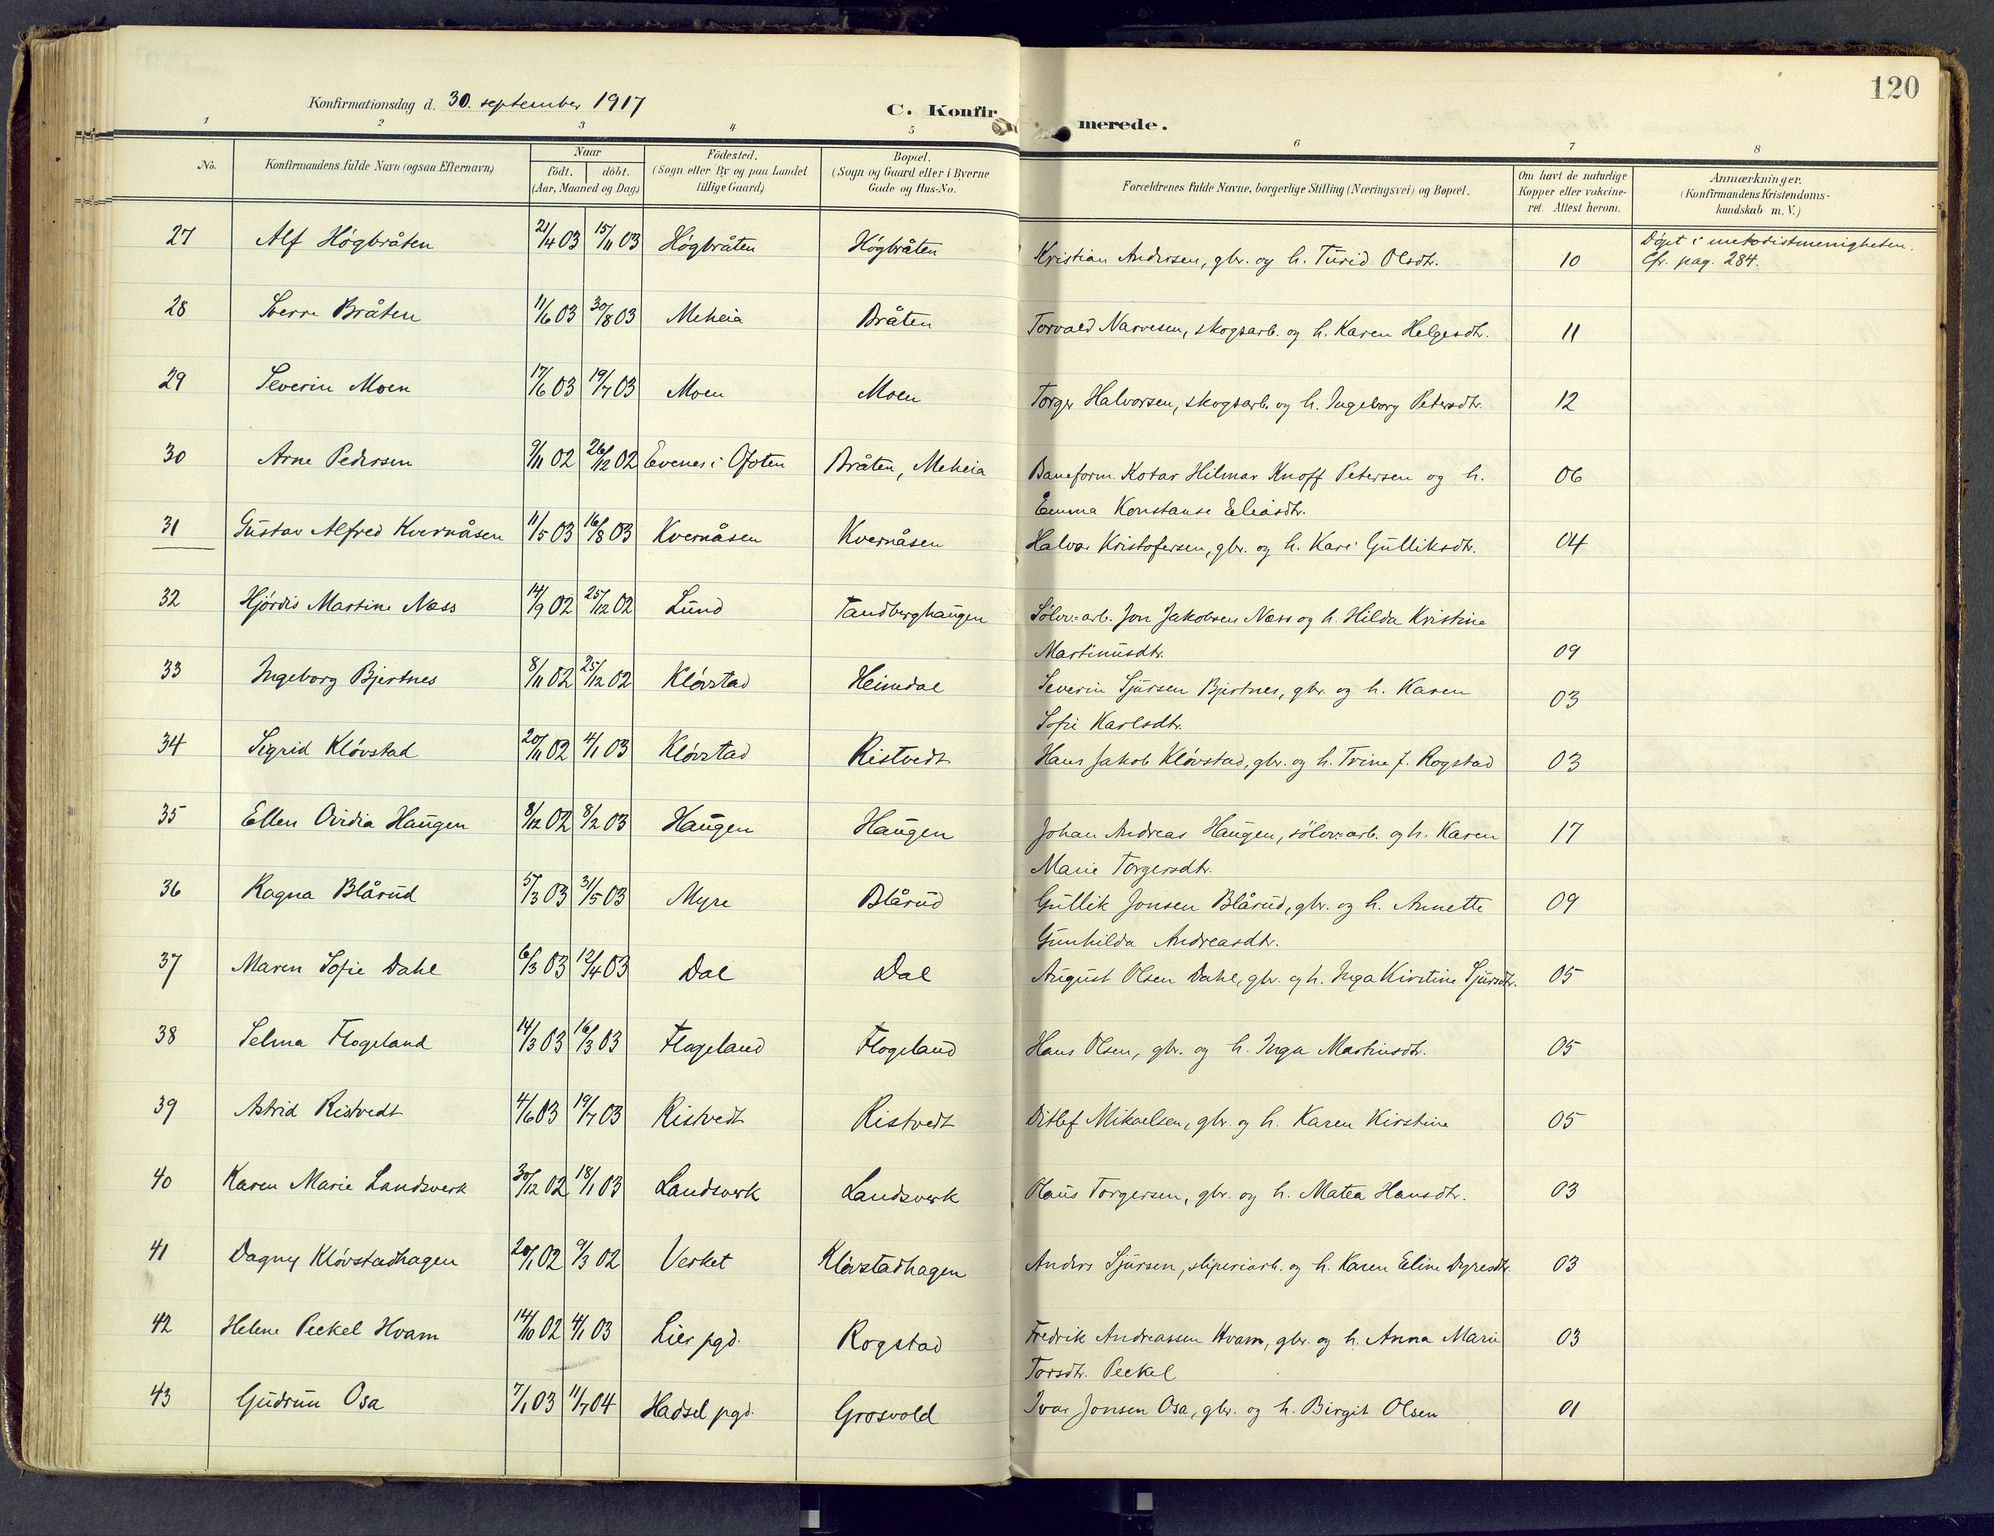 120
Konfirmationsdag d. 30. september 1917
C. Konfirmerede.
1 2 3 4 5 6 7 8
No. | Konfirmandens fulde Navn (ogsaa Efternavn) | Naar födt. döbt. (Aar, Maaned og Dag) | Födested. (Sogn eller By og paa Landet tillige Gaard) | Bopæl. (Sogn og Gaard eller i Byerne Gade og Hus-No. | Forældrenes fulde Navne, borgerlige Stilling (Næringsvei) og Bopæl. | Om havt de naturlige Kopper eller vakcineret. Attest herom. | Anmærkninger. (Konfirmandens Kristendomskundskab m. V.)
27 Alf Högbråten 21/4 03 15/11 03 Högbråten Högbråten Kristian Andersen, gbr. og h. Turid Olsdtr. 10 Döpt i metodistmenigheten.
Cfr. pag. 284.
28 Sverre Bråten 11/6 03 30/8 03 Meheia Bråten Torvald Narvesen, skogsarb. og h. Karen Helgesdtr. 11
29 Severin Moen 17/6 03 19/7 03 Moen Moen Torger Halvorsen, skogsarb. og h. Ingeborg Petersdtr. 12
30 Arne Pedersen 9/11 02 26/12 02 Evenes i Ofoten Bråten, Meheia Baneform. Kotar Hilmar Knoff Petersen og h. 06
Emma Konstanse Eliasdtr.
31 Gustav Alfred Kvernåsen 11/5 03 16/8 03 Kvernåsen Kvernåsen Halvor Kristofersen, gbr. og h. Kari Gulliksdtr. 04
32 Hjördis Martine Næss 14/9 02 25/12 02 Lund Tandberghaugen Sölvv=arb. Jon Jakobsen Næss og h. Hilda Kristine
Martinusdtr. 09
33 Ingeborg Bjertnes 8/11 02 25/12 02 Klövstad Heimdal Severin Sjursen Bjertnes, gbr. og h. Karen 03
Sofie Karlsdtr.
34 Sigrid Klövstad 20/11 02 4/1 03 Klövstad Ristvedt Hans Jakob Klövstad, gbr. og h. Trine f. Rogstad 03
35 Ellen Ovidia Haugen 8/12 02 8/2 03 Haugen Haugen Johan Andreas Haugen, sölvv=arb. og h. Karen 17
Marie Torgersdtr.
36 Ragna Blårud 5/3 03 31/5 03 Myre Blårud Gullik Jonsen Blårud, gbr. og h. Annette 09
Gunhilda Andreasdtr.
37 Maren Sofie Dahl 6/3 03 12/4 03 Dal Dal August Olsen Dahl, gbr. og h. Inga Kirstine Sjursdtr. 05
38 Selma Flogeland 14/3 03 16/3 03 Flogeland Flogeland Hans Olsen, gbr. og h. Inga Martinsdtr. 05
39 Astrid Ristvedt 4/6 03 19/7 03 Ristvedt Ristvedt Ditlef Mikaelsen, gbr. og h. Karen Kirstine 05
40 Karen Marie Landsverk 30/12 02 18/1 03 Landsverk Landsverk Olaus Torgersen, gbr. og h. Matea Hansdtr. 03
41 Dagny Klövstadhagen 20/1 02 9/3 02 Verket Klövstadhagen Anders Sjursen, sliperiarb. og h. Karen Eline Dyresdtr. 03
42 Helene Peckel Hvam 14/10 02 4/1 03 Lier pgd. Rogstad Fredrik Andreassen Hvam, gbr. og h. Anna Marie 03
Torsdtr. Peckel
43 Gudrun Osa 7/1 03 11/7 04 Hadsel pgd. Grosvold Ivar Jonsen Osa, gbr. og h. Birgit Olsen 01